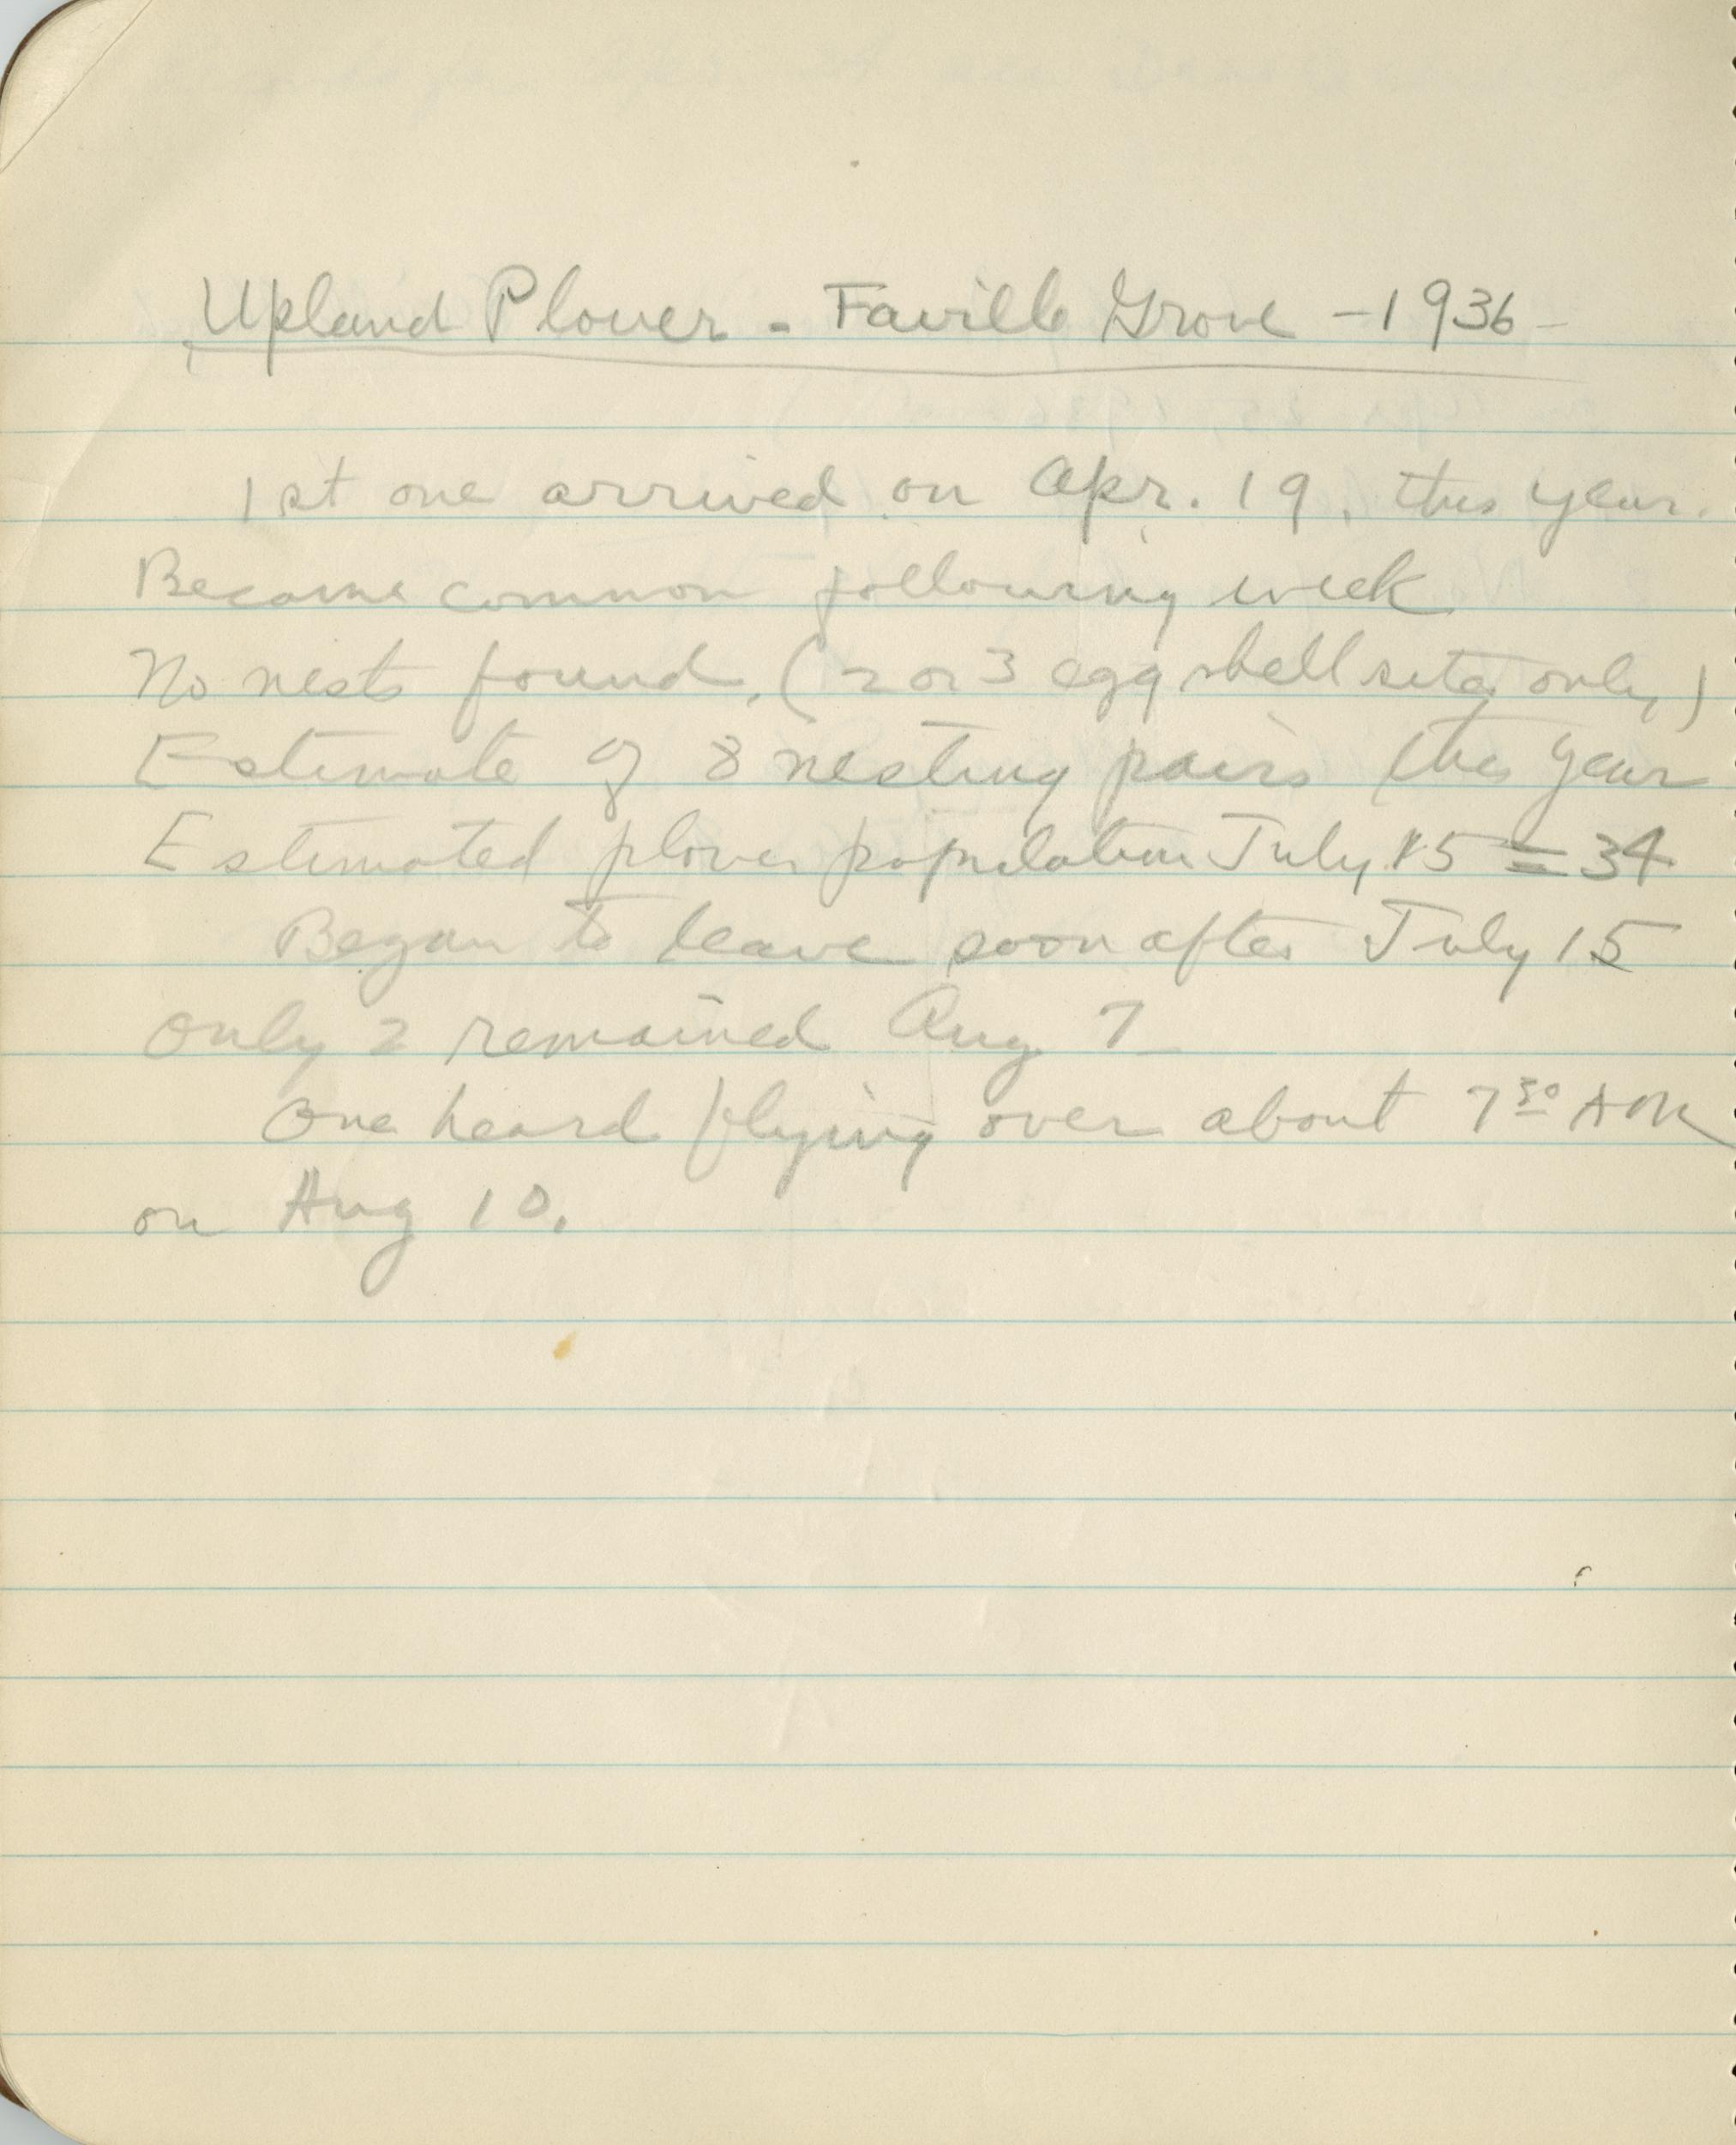 Upland Plover - Faville Grove - 1936 -
1st one arrived on Apr. 19, this year.
Became common following week
No nests found, (2 or 3 egg shell sites only)
Estimate of 8 nesting pairs this year
Estimated plover population July 15 = 34
Began to leave soon after July 15
Only 2 remained Aug 7
One heard flying over about 7 30 AM
on Aug 10.